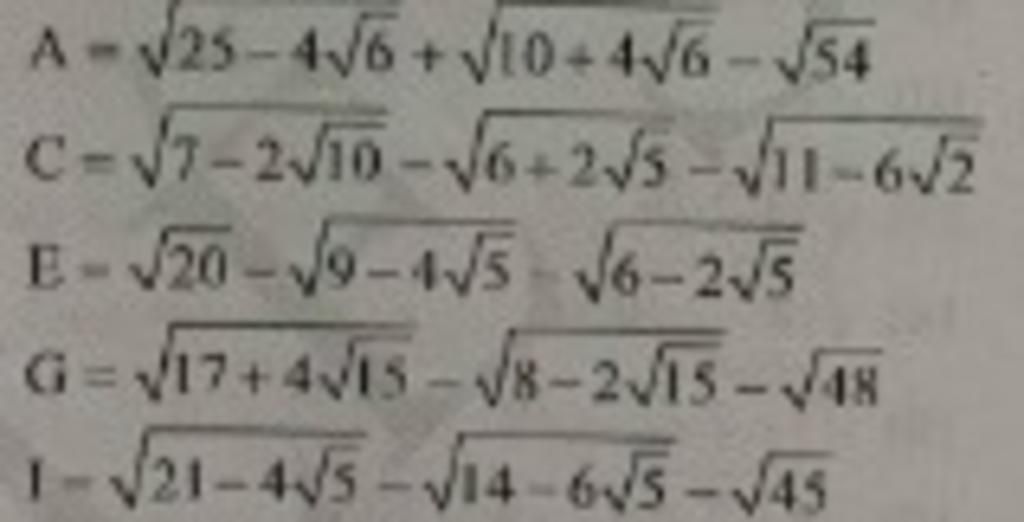 A = √(25 − 4√6) + √(10 + 4√6) − √54
C = √(7 − 2√10) − √(6 + 2√5) − √(11 − 6√2)
E = √20 − √(9 − 4√5) − √(6 − 2√5)
G = √(17 + 4√15) − √(8 − 2√15) − √48
I = √(21 − 4√5) − √(14 − 6√5) − √45